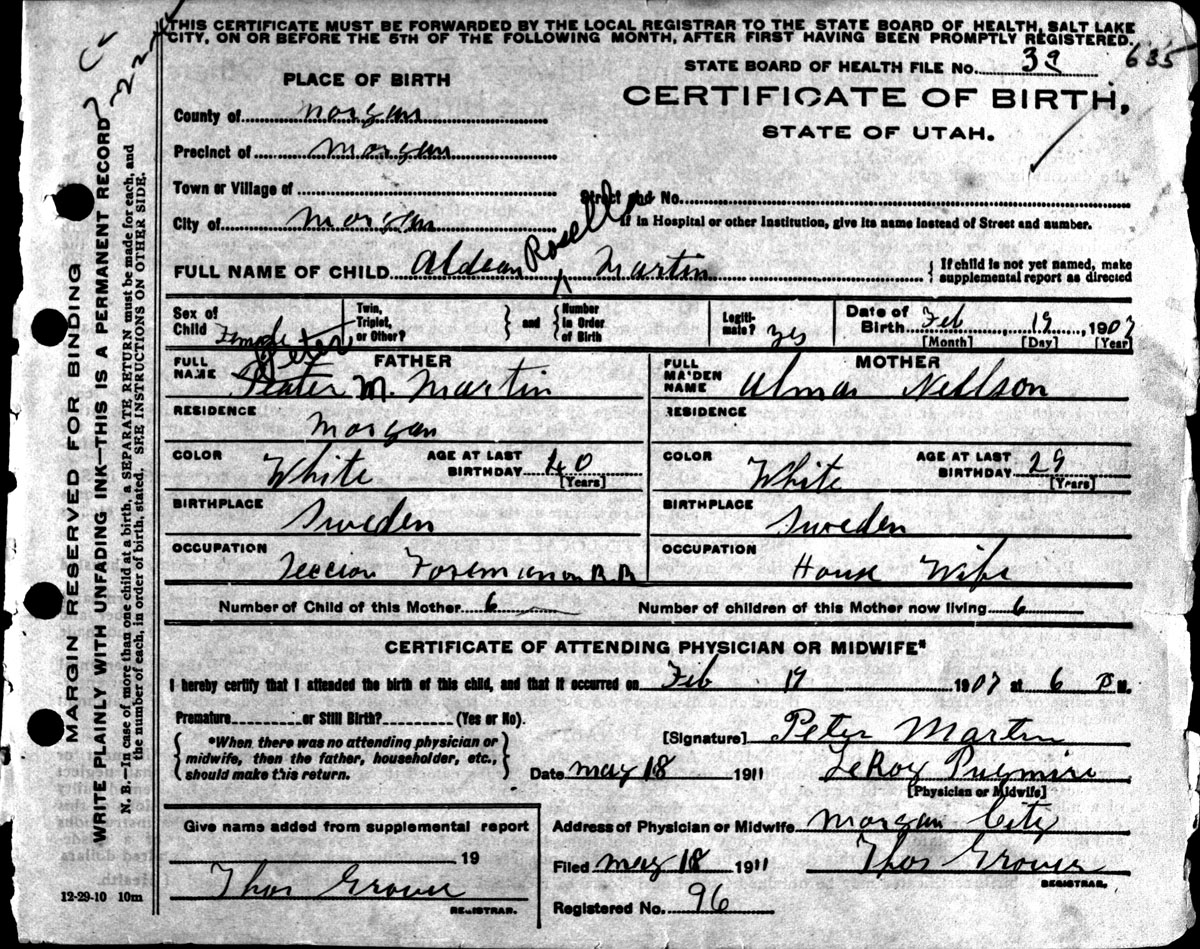 THIS CERTIFICATE MUST BE FORWARDED BY THE LOCAL REGISTRAR TO THE STATE BOARD OF HEALTH, SALT LAKE
CITY, ON OR BEFORE THE 5TH OF THE FOLLOWING MONTH, AFTER FIRST HAVING BEEN PROMPTLY REGISTERED.
STATE BOARD OF HEALTH FILE NO. 39 635
PLACE OF BIRTH
CERTIFICATE OF BIRTH,
STATE OF UTAH.
County of Morgan
Precinct of Morgan
Town or Village of
Street and No.
City of Morgan
If in Hospital or other Institution, give its name instead of Street and number.
FULL NAME OF CHILD Aldean Rosella Martin
If child is not yet named, make
supplemental report as directed
Sex of Child Female
Twin, Triplet, or Other?
and
Number in Order of Birth
Legiti-mate? Yes
Date of Birth Feb, 19, 1907
[Month] [Day] [Year]
FATHER
FULL NAME Peater M. Martin
Peter
MOTHER
FULL MAIDEN NAME Alma Neilson
RESIDENCE Morgan
RESIDENCE
COLOR White AGE AT LAST BIRTHDAY 40 [Years]
COLOR White AGE AT LAST BIRTHDAY 29 [Years]
BIRTHPLACE Sweden
BIRTHPLACE Sweden
OCCUPATION Seccion Foreman on R.R
OCCUPATION House Wife
Number of Child of this Mother 6 Number of children of this Mother now living 6
CERTIFICATE OF ATTENDING PHYSICIAN OR MIDWIFE*
I hereby certify that I attended the birth of this child, and that it occurred on Feb 19 1907 at 6 P M.
Premature or Still Birth? (Yes or No).
*When there was no attending physician or
midwife, then the father, householder, etc.,
should make this return.
[Signature] Peter Martin
Date May 18 1911 LeRoy Pugmire
[Physician or Midwife]
Give name added from supplemental report
19
Thos Grover
REGISTRAR.
Address of Physician or Midwife Morgan City
Filed May 18 1911 Thos Grover
REGISTRAR.
Registered No. 96
12-29-10 10m
MARGIN RESERVED FOR BINDING
WRITE PLAINLY WITH UNFADING INK—THIS IS A PERMANENT RECORD
N. B.—In case of more than one child at a birth, a SEPARATE RETURN must be made for each, and
the number of each, in order of birth, stated. SEE INSTRUCTIONS ON OTHER SIDE.